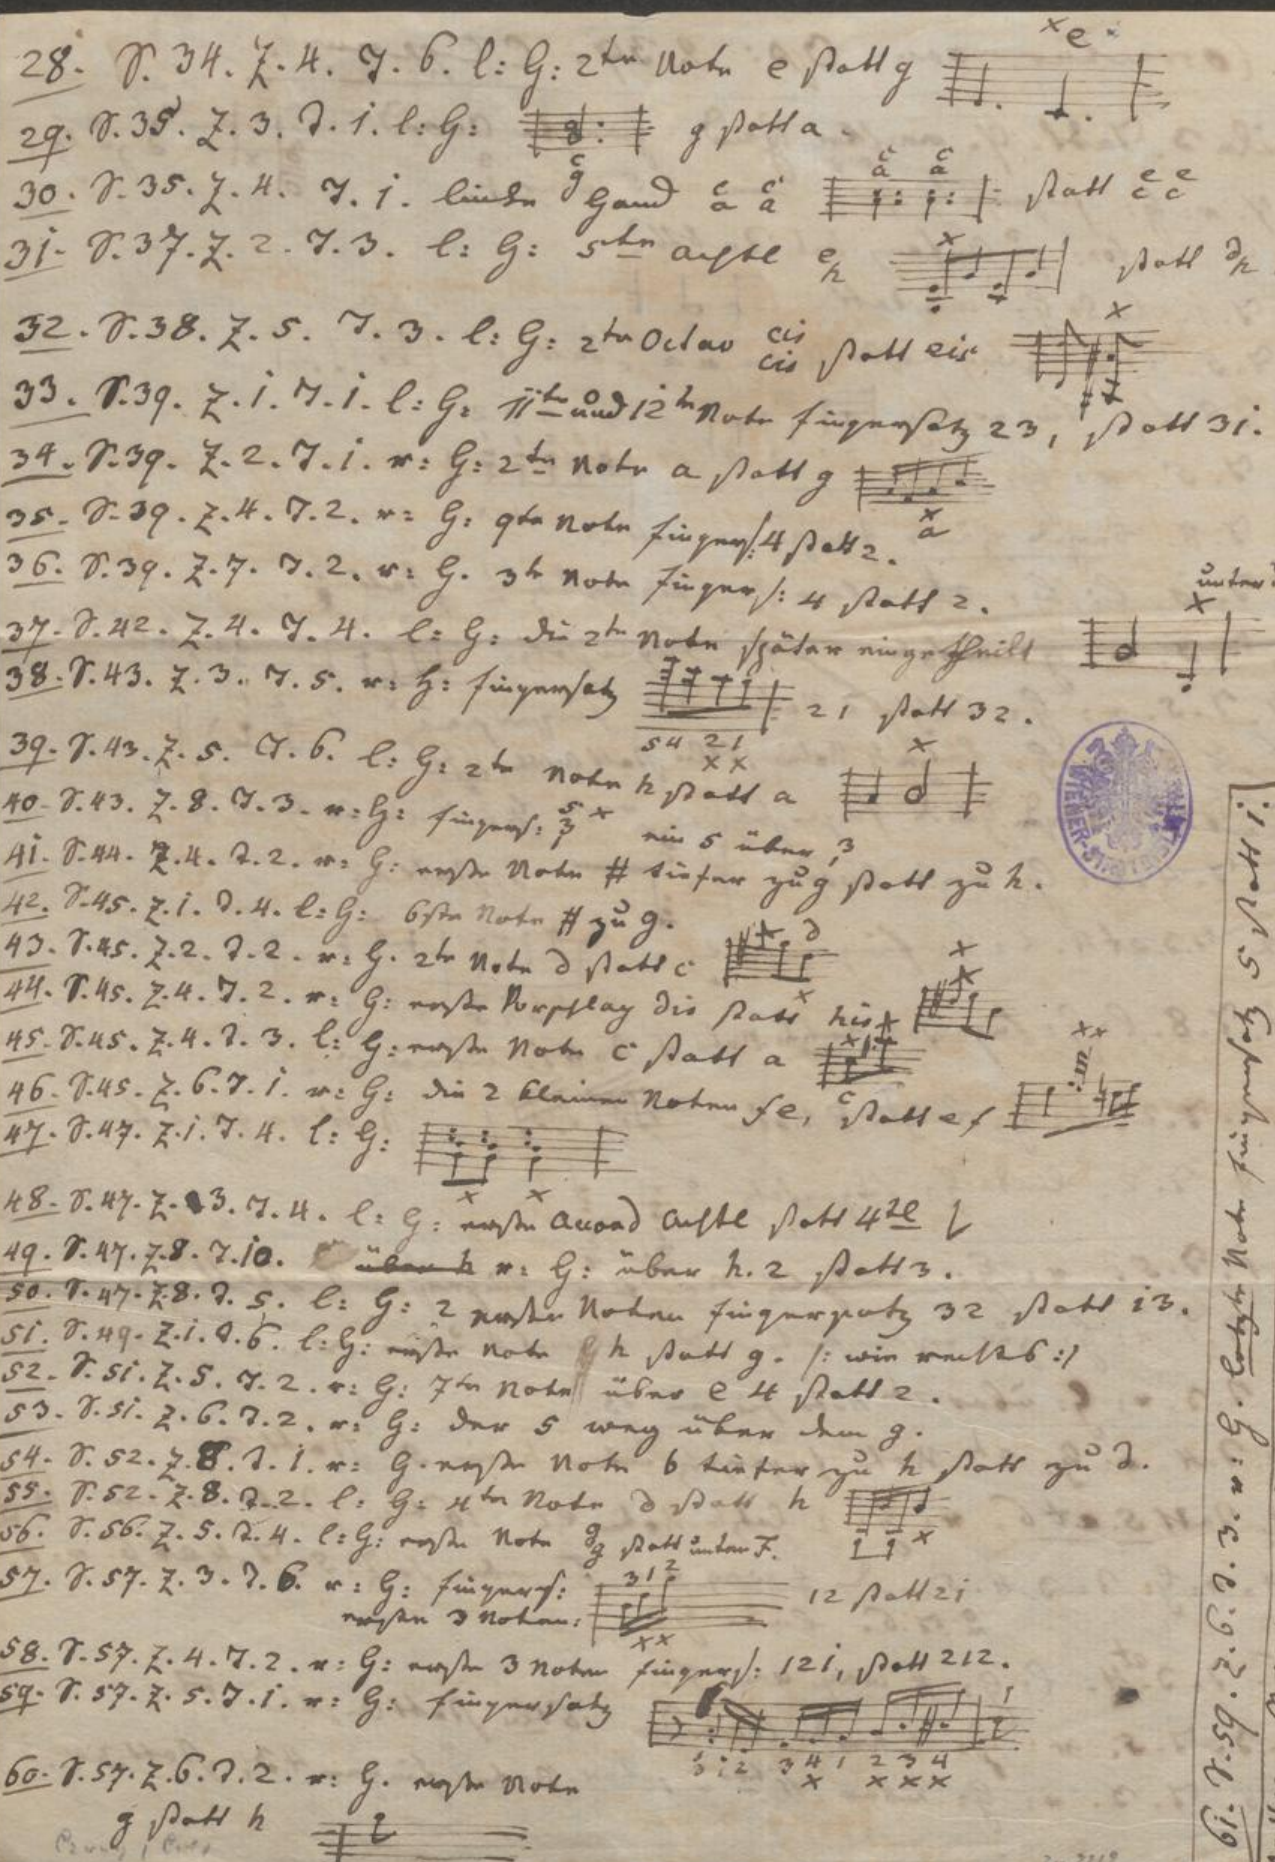 28. S. 34. Z. 4. T. 6. l: H: 2te Note e statt g x e x
29. S. 35. Z. 3. T. 1. l: H: g statt a.
c
g
30. S. 35. Z. 4. T. 1. linke Hand c a c a c a c a statt e c e c
31. S. 37. Z. 2. T. 3. l: H: 5te Achtl e/h x statt d/h
32. S. 38. Z. 5. T. 3. l: H: 2te Octav cis cis statt eis x
33. S. 39. Z. 1. T. 1. l: H: 11te und 12te Note Fingersatz 23, statt 31.
34. S. 39. Z. 2. T. 1. r: H: 2te Note a statt g x a
35. S. 39. Z. 4. T. 2. r: H: 9te Note Fingers: 4 statt 2.
36. S. 39. Z. 7. T. 2. r: H. 3te Note Fingers: 4 statt 2.
37. S. 42. Z. 4. T. 4. l: H: die 2te Note später eingetheilt unter x
38. S. 43. Z. 3. T. 5. r: H: Fingersatz 21 statt 32.
54 21
x x
39. S. 43. Z. 5. T. 6. l: H: 2te Note h statt a x
40. S. 43. Z. 8. T. 3. r: H: Fingers: 5 3 x ein 5 über 3
41. S. 44. Z. 4. T. 2. r: H: erste Note # tiefer zu g statt zu h.
42. S. 45. Z. 1. T. 4. l: H: 6ste Note # zu g.
43. S. 45. Z. 2. T. 2. r: H. 2te Note d statt c x d
44. S. 45. Z. 4. T. 2. r: H: erste Vorschlag dis statt his x
45. S. 45. Z. 4. T. 3. l: H: erste Note c statt a x
46. S. 45. Z. 6. T. 1. r: H: die 2 kleinen Noten fe, statt ef xx
47. S. 47. Z. 1. T. 4. l: H:
x x
48. S. 47. Z. 3. T. 4. l: H: erste Accord Achtl statt 4tel
49. S. 47. Z. 8. T. 10. über h r: H: über h. 2 statt 3.
50. S. 47. Z. 8. T. 5. l: H: 2 erste Noten Fingersatz 32 statt 13.
51. S. 49. Z. 1. T. 6. l: H: erste Note h statt g. /: wie rechts :/
52. S. 51. Z. 5. T. 2. r: H: 7te Note über e 4 statt 2.
53. S. 51. Z. 6. T. 2. r: H: der 5 weg über dem g.
54. S. 52. Z. 8. T. 1. r: H. erste Note b tiefer zu h statt zu d.
55. S. 52. Z. 8. T. 2. l: H: 4te Note d statt h x
56. S. 56. Z. 5. T. 4. l: H: erste Note g g statt unten F.
57. S. 57. Z. 3. T. 6. r: H: Fingers: 312 12 statt 21
erste 3 Noten: xx
58. S. 57. Z. 4. T. 2. r: H: erste 3 Noten Fingers: 121, statt 212.
59. S. 57. Z. 5. T. 1. r: H: Fingersatz
3 4 1 2 3 4
x x x x
60. S. 57. Z. 6. T. 2. r: H. erste Note
g statt h
61. S. 59. Z. 6. T. 3. r: H. letzte Note Fingersatz 5 statt 1.
WIENER-STADTBIBLIOTHEK